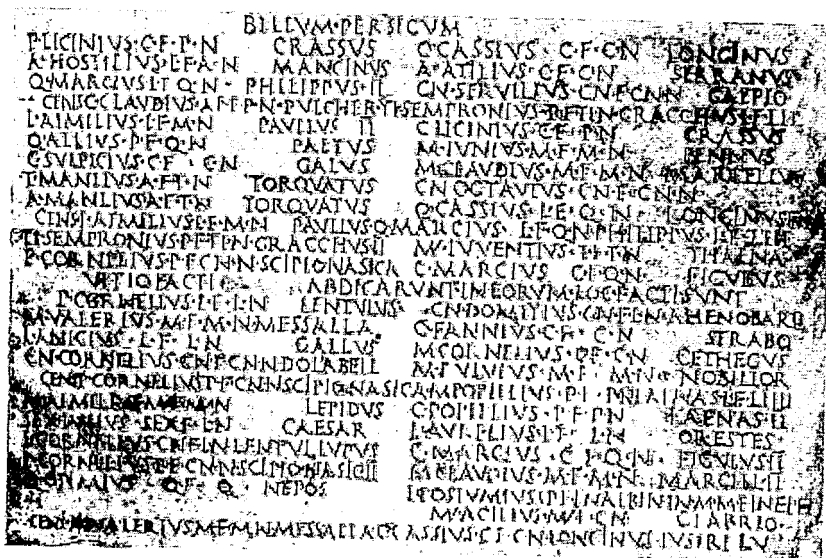 BELLVM·PERSICVM
P·LICINIVS·C·F·P·N CRASSVS C·CASSIVS·C·F·C·N LONGINVS
A·HOSTILIVS·L·F·A·N MANCINVS A·ATILIVS·C·F·C·N SERRANVS
Q·MARCIVS·L·F·Q·N·PHILIPPVS·II CN·SERVILIVS·CN·F·CN·N·CAEPIO
CENS·C·CLAVDIVS·AP·F·P·N·PVLCHER·TI·SEMPRONIVS·P·F·TI·N·GRACCHVS·L·F
L·AIMILIVS·L·F·M·N PAVLLVS II C·LICINIVS·C·F·P·N CRASSVS
Q·AILIVS·P·F·Q·N PAETVS M·IVNIVS·M·F·M·N PENNVS
C·SVLPICIVS·C·F·C·N GALVS M·CLAVDIVS·M·F·M·N
T·MANLIVS·A·F·T·N TORQVATVS CN·OCTAVIVS·CN·F·CN·N
A·MANLIVS·A·F·T·N TORQVATVS Q·CASSIVS·L·F·Q·N LONGINVS
CENS·L·AIMILIVS·L·F·M·N PAVLLVS·Q·MARCIVS·L·F·Q·N·PHILIPPVS·L·F
TI·SEMPRONIVS·P·F·TI·N·GRACCHVS·II M·IVVENTIVS·T·F·T·N THALNA
P·CORNELIVS·P·F·CN·N·SCIPIO·NASICA C·MARCIVS C·F·Q·N FIGVLVS
VITIO·FACTI ABDICARVNT·IN·EORVM·LOC·FACTI·SVNT
P·CORNELIVS·L·F·L·N LENTVLVS CN·DOMITIVS·CN·F·L·N·AHENOBARB
M·VALERIVS·M·F·M·N·MESSALLA C·FANNIVS·C·F·C·N STRABO
L·ANICIVS·L·F·L·N GALLVS M·CORNELIVS·C·F·C·N CETHEGVS
CN·CORNELIVS·CN·F·CN·N·DOLABELL M·FVLVIVS·M·F·M·N·NOBILIOR
CENS·P·CORNELIVS·P·F·CN·N·SCIPIO·NASICA·M·POPILLIVS·P·F·P·N·LAINAS·L·F
M·AIMILIVS·M·F·M·N LEPIDVS C·POPILLIVS·P·F·P·N LAENAS·II
SEX·IVLIVS·SEX·F·L·N CAESAR L·AVRELIVS·L·F·L·N ORESTES
L·CORNELIVS·CN·F·L·N·LENTVL·LVPVS C·MARCIVS·C·F·Q·N·FIGVLVS·II
P·CORNELIVS·P·F·CN·N·SCIPIO·NASIC·II M·CLAVDIVS·M·F·M·N·MARCELL·II
Q·OPIMIVS·Q·F·Q·N NEPOS L·POSTVMIVS·SP·F·L·N·ALBIN·IN·M·M·E·IN·E·L·F
M·ACILIVS·M·F·C·N GLABRIO
CENS·M·VALERIVS·M·F·M·N·MESSALLA·C·CASSIVS·C·F·C·N·LONGINVS